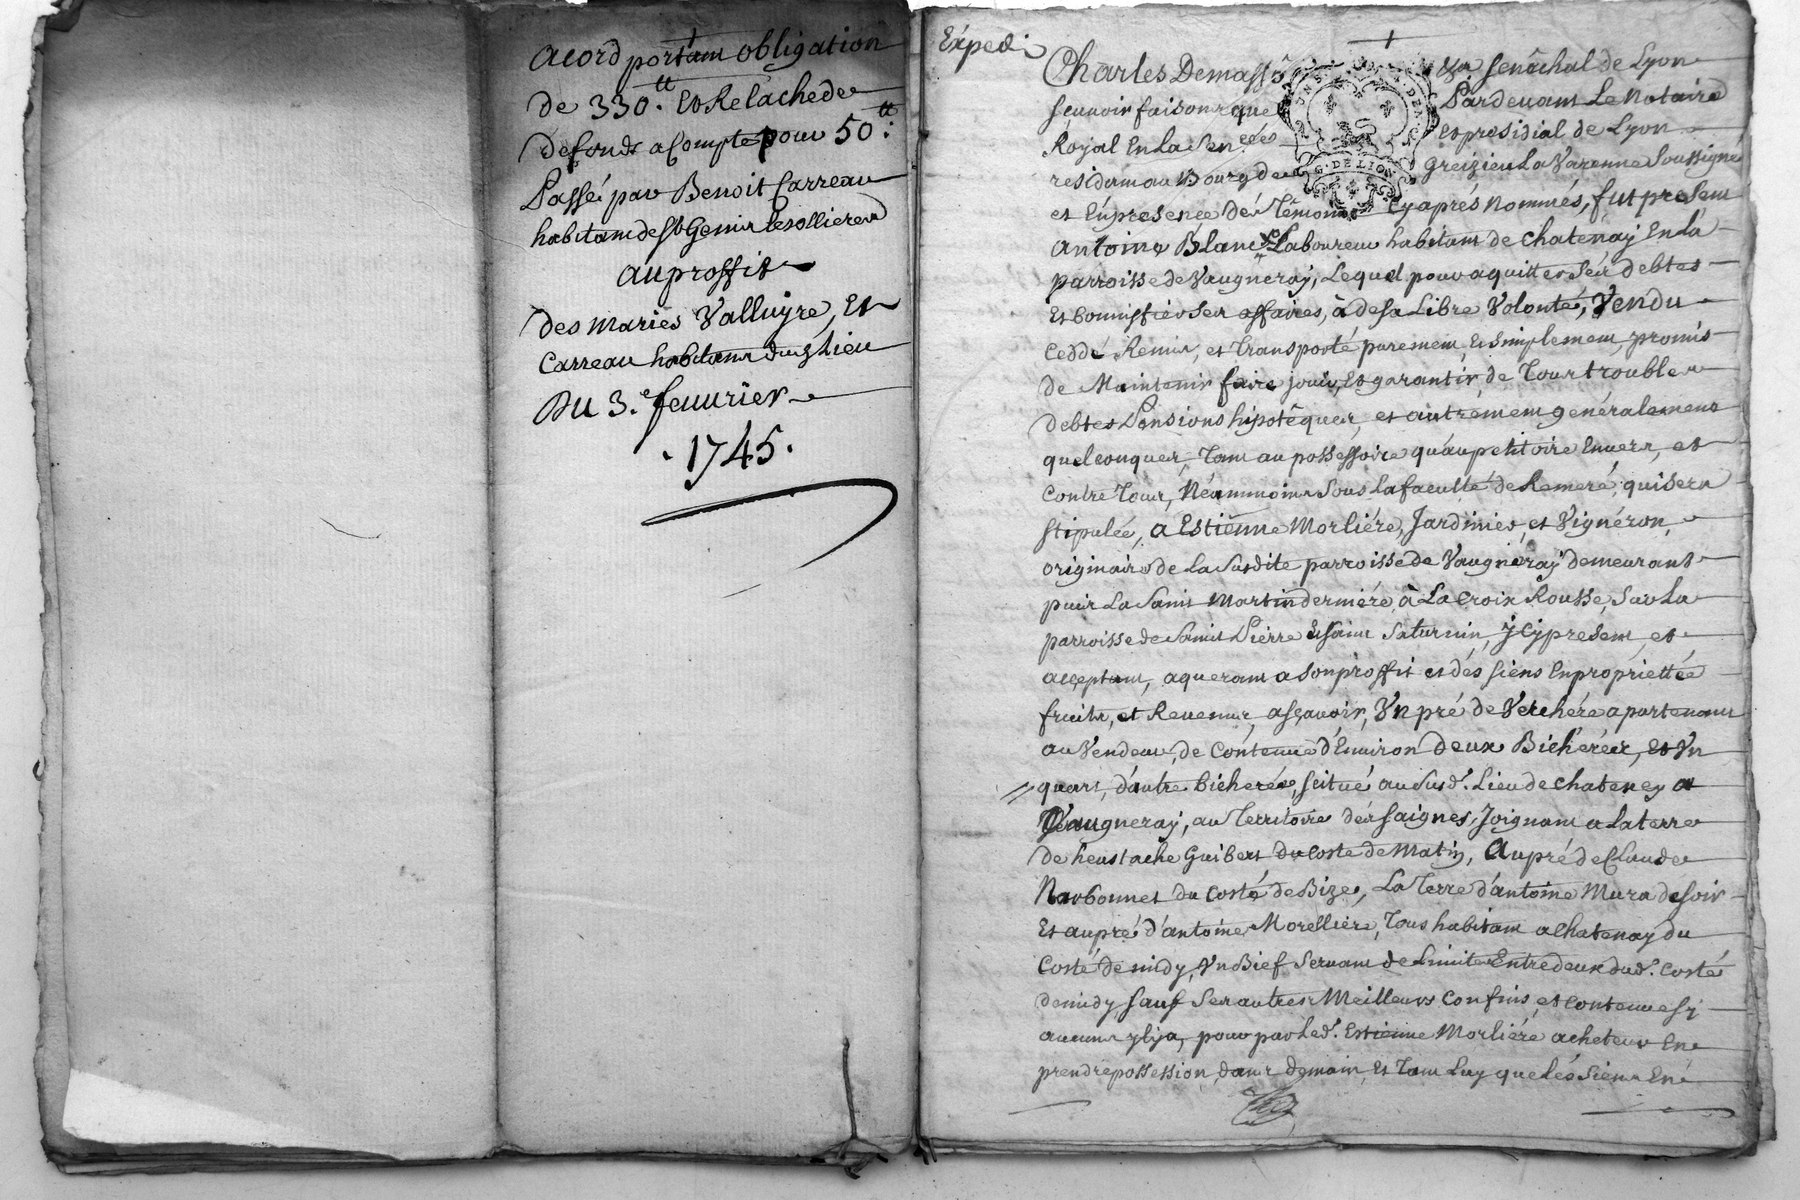 acord portant obligation
de 330.tt et Relache de
de fonds a Compte pour 50.tt
Passé par Benoit Carreau
habitant de St Genis lesollieres
au proffit
des mariés Valluyre, Et
Carreau habitans dud. Lieu
Du 3.e feuurier
. 1745 .
Expedi
Charles Demass senéchal de Lyon
sçauoir faisons que Pardeuant Le Notaire
Royal En La Sen.ceés et presidial de Lyon
residant au Bourg de Greizieu La Varenne Soussigné
et En presence des Témoins Cy aprés Nommés, fut present
Antoine Blanc Laboureur habitant de Chatenay En La
parroisse de Vaugneray, Lequel pour aquitter Ses debtes
Et bonniffier Ses affaires, à de sa Libre Volonté, Vendu
Ceddé Remis, et Transporté purement, et simplement, promis
de Maintenir faire jouir, et garantir de Tous troubles
debtes Pensions hipotéques, et autrement generalement
quelconques, Tant au possessoire qu'au petitoire Enuers, et
Contre Tous, Néanmoins Sous La faculté de Remeré, qui sera
stipulée, a Estienne Morliére, Jardinier, et Vignéron,
originaire de La Susdite parroisse de Vaugneray demeurant
puis La Saint Martin derniére, à La Croix Rousse, Sur La
parroisse de Saint Pierre et saint Saturnin, jcy present, et
acceptant, aquerant a son proffit et dés siens En propriettée
fruits, et Reuenus, asçauoir, Vn pré de Verchére apartenant
au Vendeur, de Contenue d'Enuiron deux Bicherées, et Vn
quart, d'autre bicherée, scitué au Susd. Lieu de Chateney a
Vaugneray, au Territoire dés saignes, Joignant a La terre
de heustache Guibert du Costé de Matin, Au pré de Claude
Narbonnet du Costé de Bize, La Terre d'antoine Mura de soir
Et au pré d'antoine Morelliere, Tous habitant a Chatenay du
Costé de midy, Vn Bief Seruant de Limite Entre deux dud. Costé
de midy, sauf Ses autres Meilleurs Confins, et Contenue sy
aucuns y lya, pour par Led. Estienne Morliére acheteur En
prendre possession, dans demain, Et Tant Luy que Lés Siens En